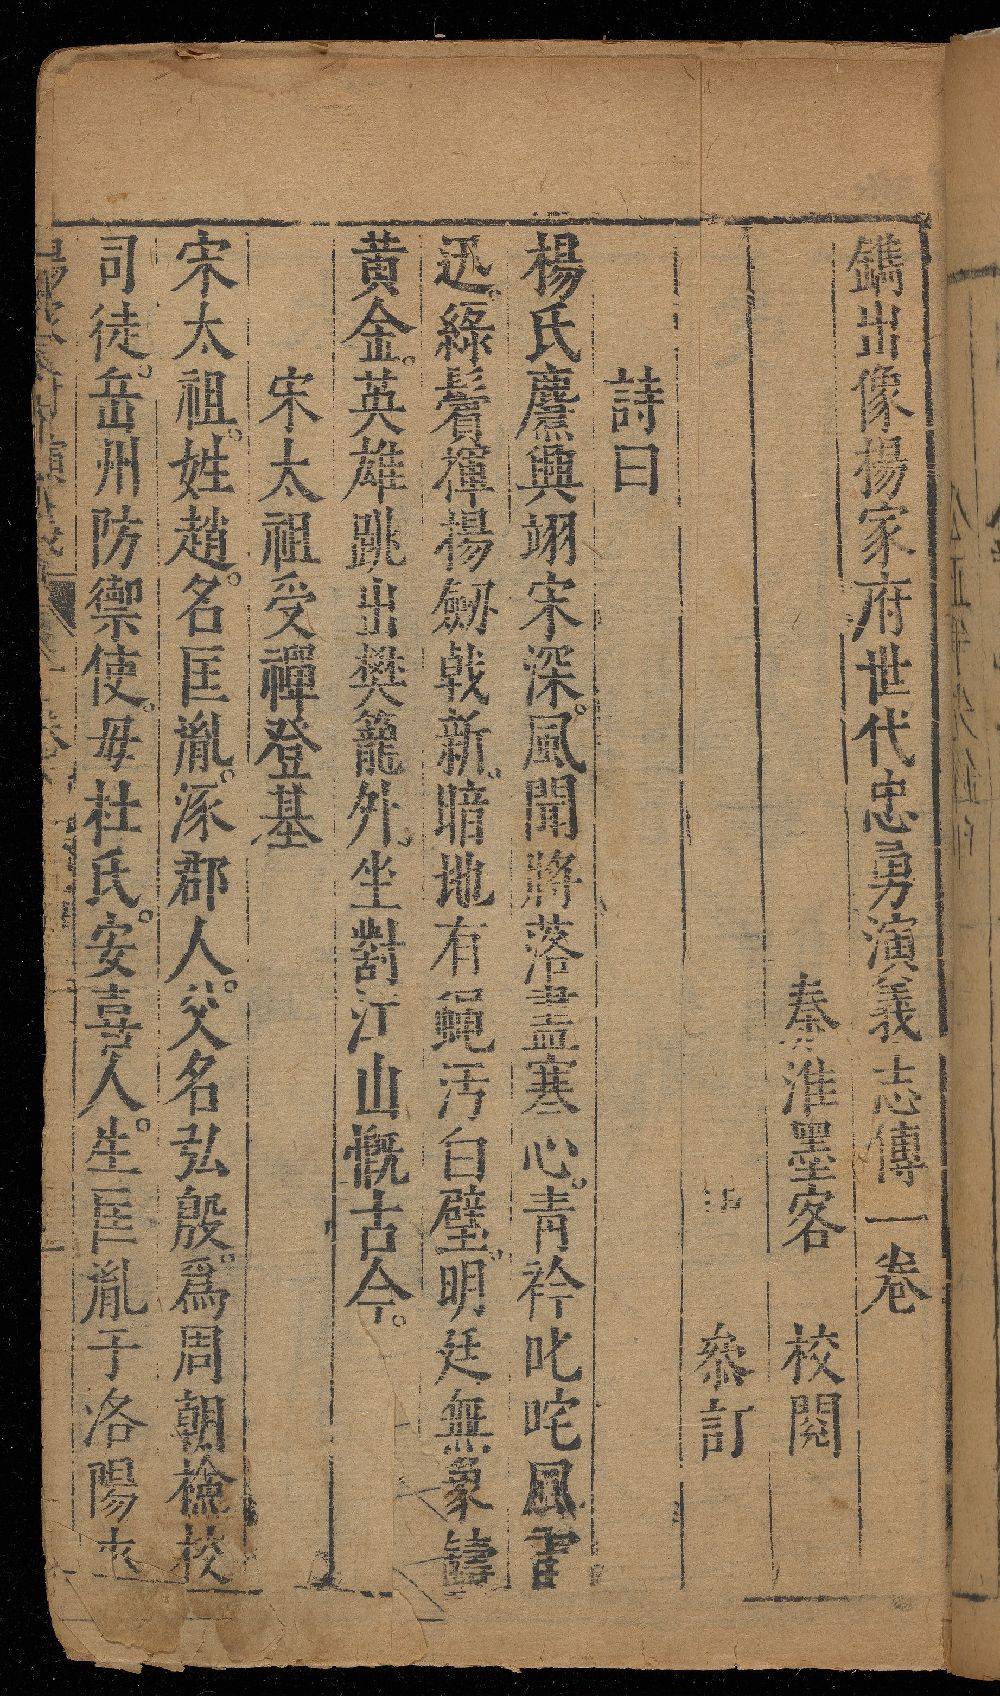 鐫出像楊家府世代忠勇演義志傳一卷
秦淮墨客　校閱
叅訂
詩曰
楊氏麃興翊宋深。風聞將落盡寒心。青衿叱咤風雷
迅。綠鬢揮揚劔戟新。暗地有蠅汚白壁。明廷無象鑄
黃金。英雄跳出樊籠外。坐對江山慨古今。
宋太祖受禪登基
宋太祖。姓趙。名匡胤。涿郡人。父名弘殷。爲周朝檢校
司徒。岳州防禦使。母杜氏。安喜人。生匡胤于洛陽夾